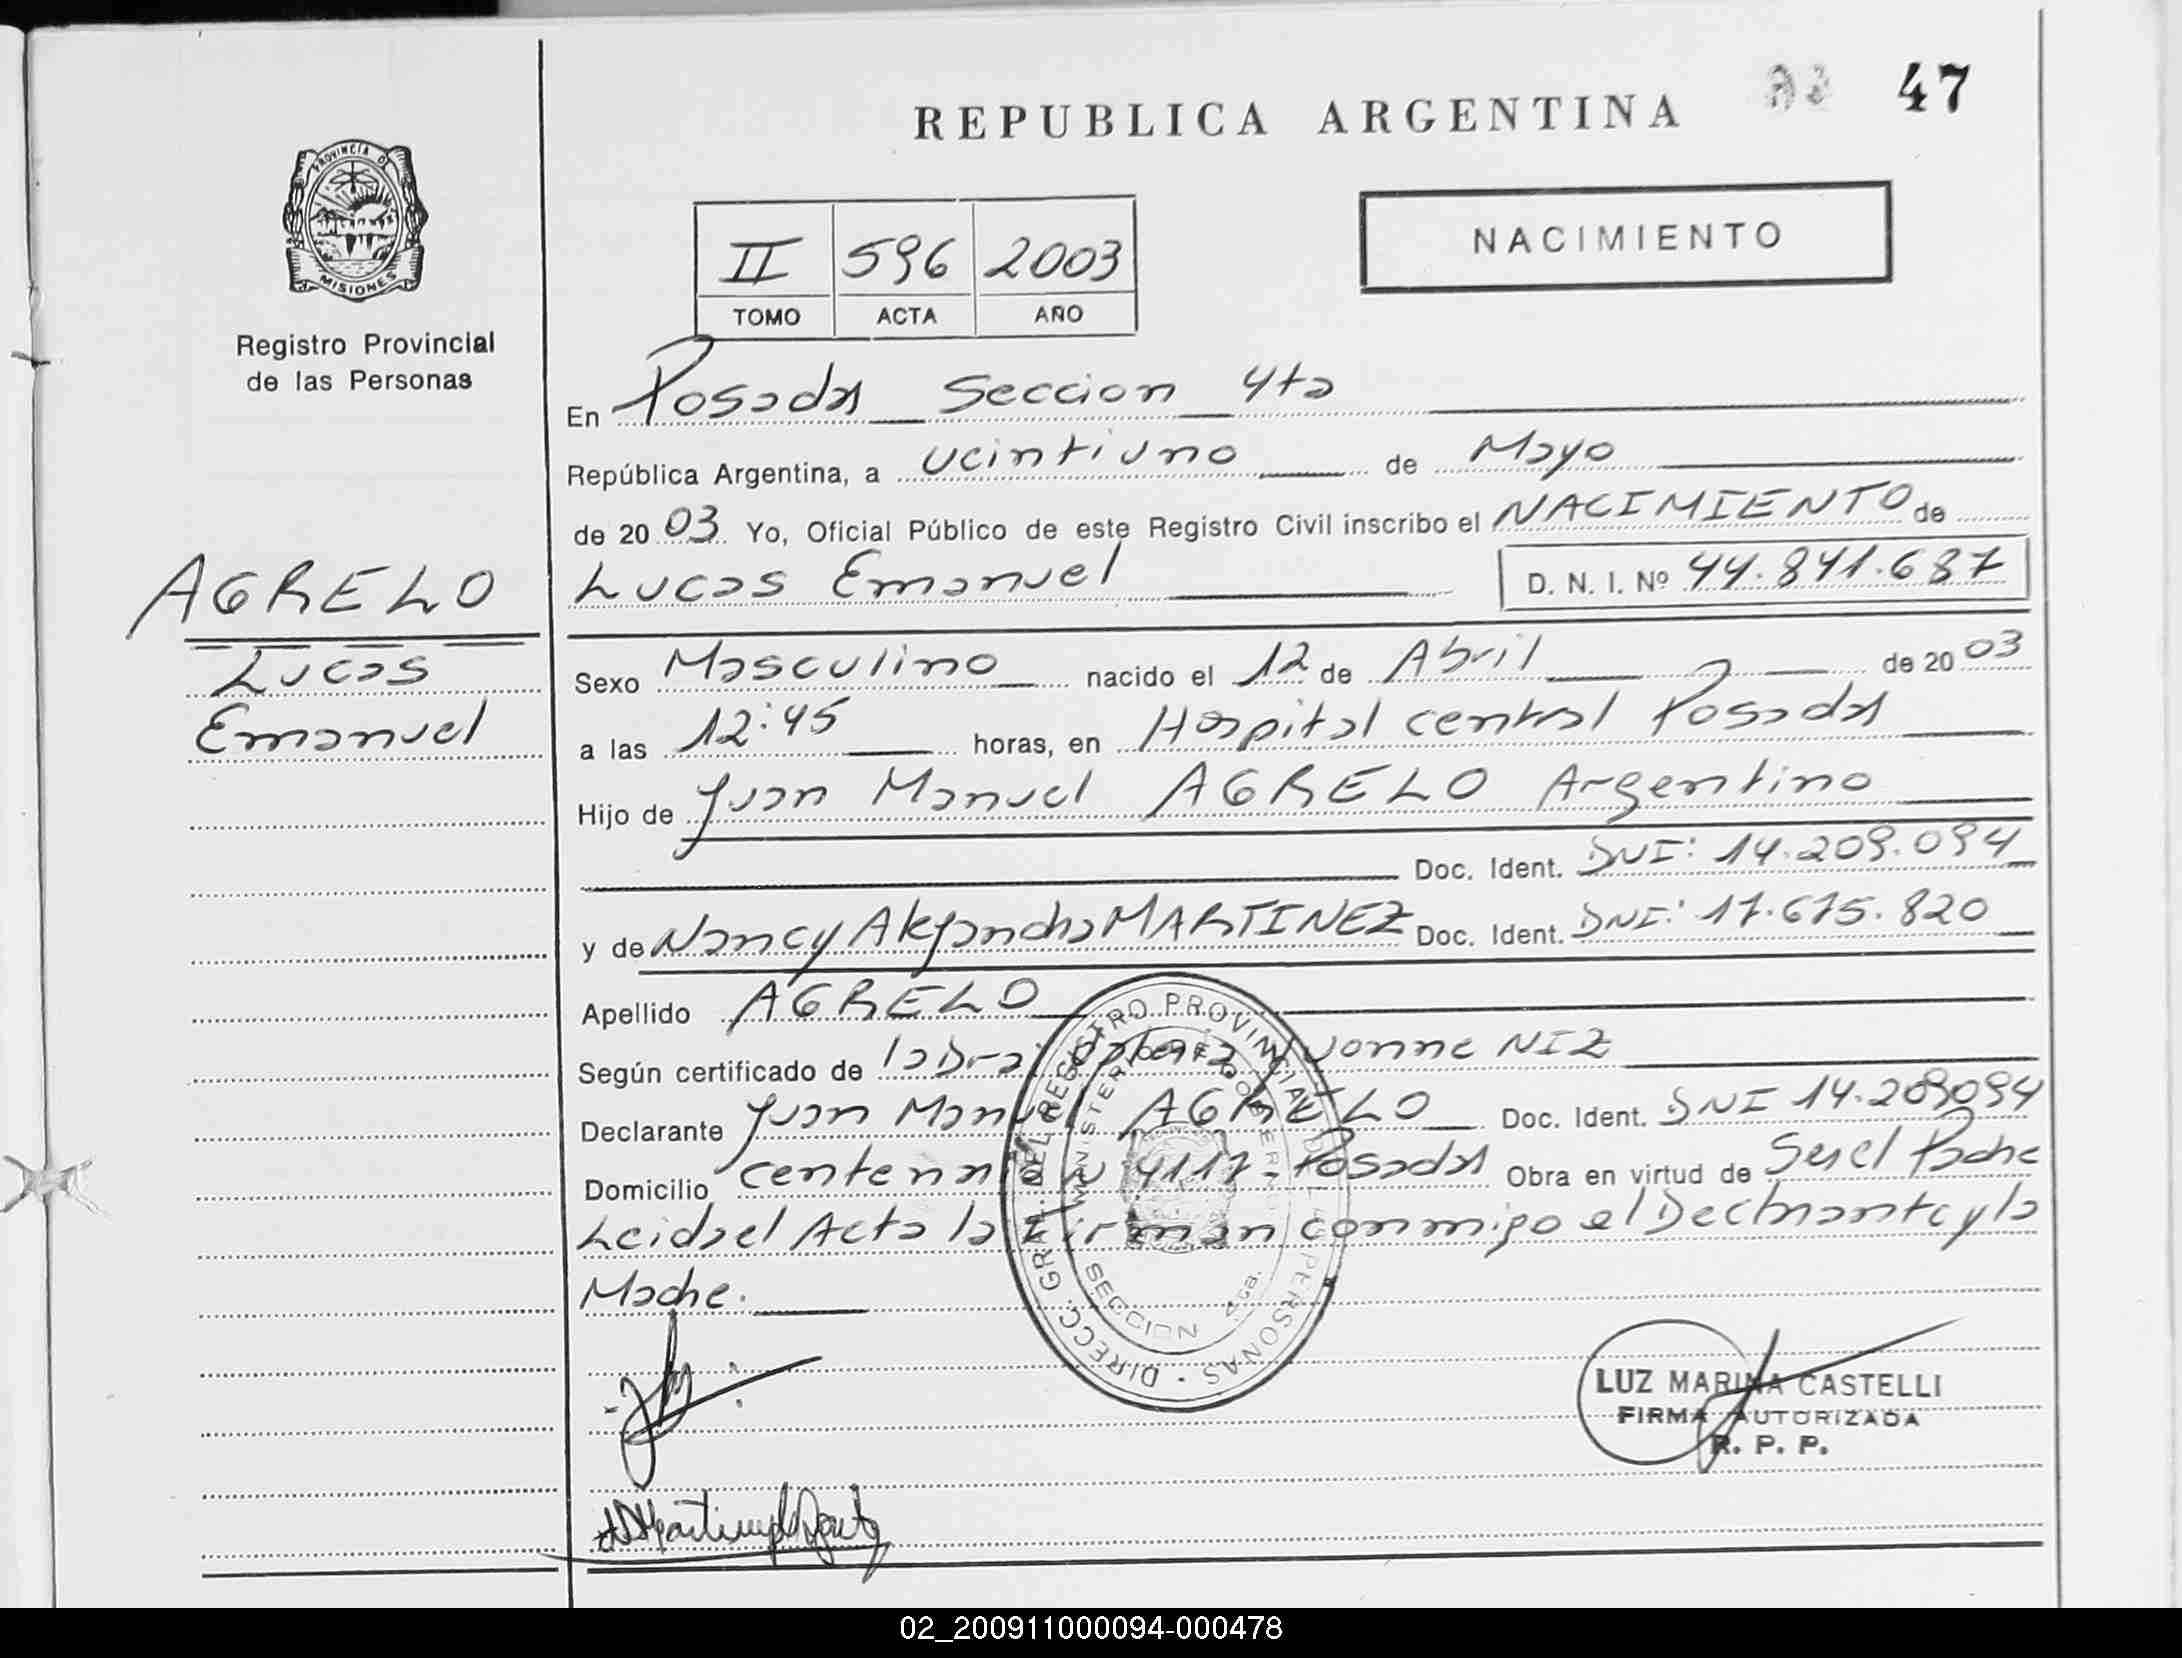 REPUBLICA ARGENTINA
47
PROVINCIA D
MISIONES
Registro Provincial
de las Personas
II 596 2003
TOMO ACTA AÑO
NACIMIENTO
En Posadas Seccion 4ta
República Argentina, a veintiuno de Mayo
de 2003 Yo, Oficial Público de este Registro Civil inscribo el NACIMIENTO de
Lucas Emanuel D. N. I. Nº 44.841.687
AGRELO
Lucas
Emanuel
Sexo Masculino nacido el 12 de Abril de 2003
a las 12:45 horas, en Hospital central Posadas
Hijo de Juan Manuel AGRELO Argentino
Doc. Ident. DNI: 14.209.094
y de Nancy Alejandra MARTINEZ Doc. Ident. DNI: 17.675.820
Apellido AGRELO
Según certificado de la Dra. Yvonne NIZ
Declarante Juan Manuel AGRELO Doc. Ident. DNI 14.209094
Domicilio centenario N 4117 - Posadas Obra en virtud de Ser el Padre
Leida el Acta la Firman conmigo el Declarante y la
Madre.
DIRECC. GRAL. DEL REGISTRO PROVINCIAL DE LAS PERSONAS
MINISTERIO DE GOBIERNO
SECCION 4ta.
LUZ MARINA CASTELLI
FIRMA AUTORIZADA
R. P. P.
02_200911000094-000478